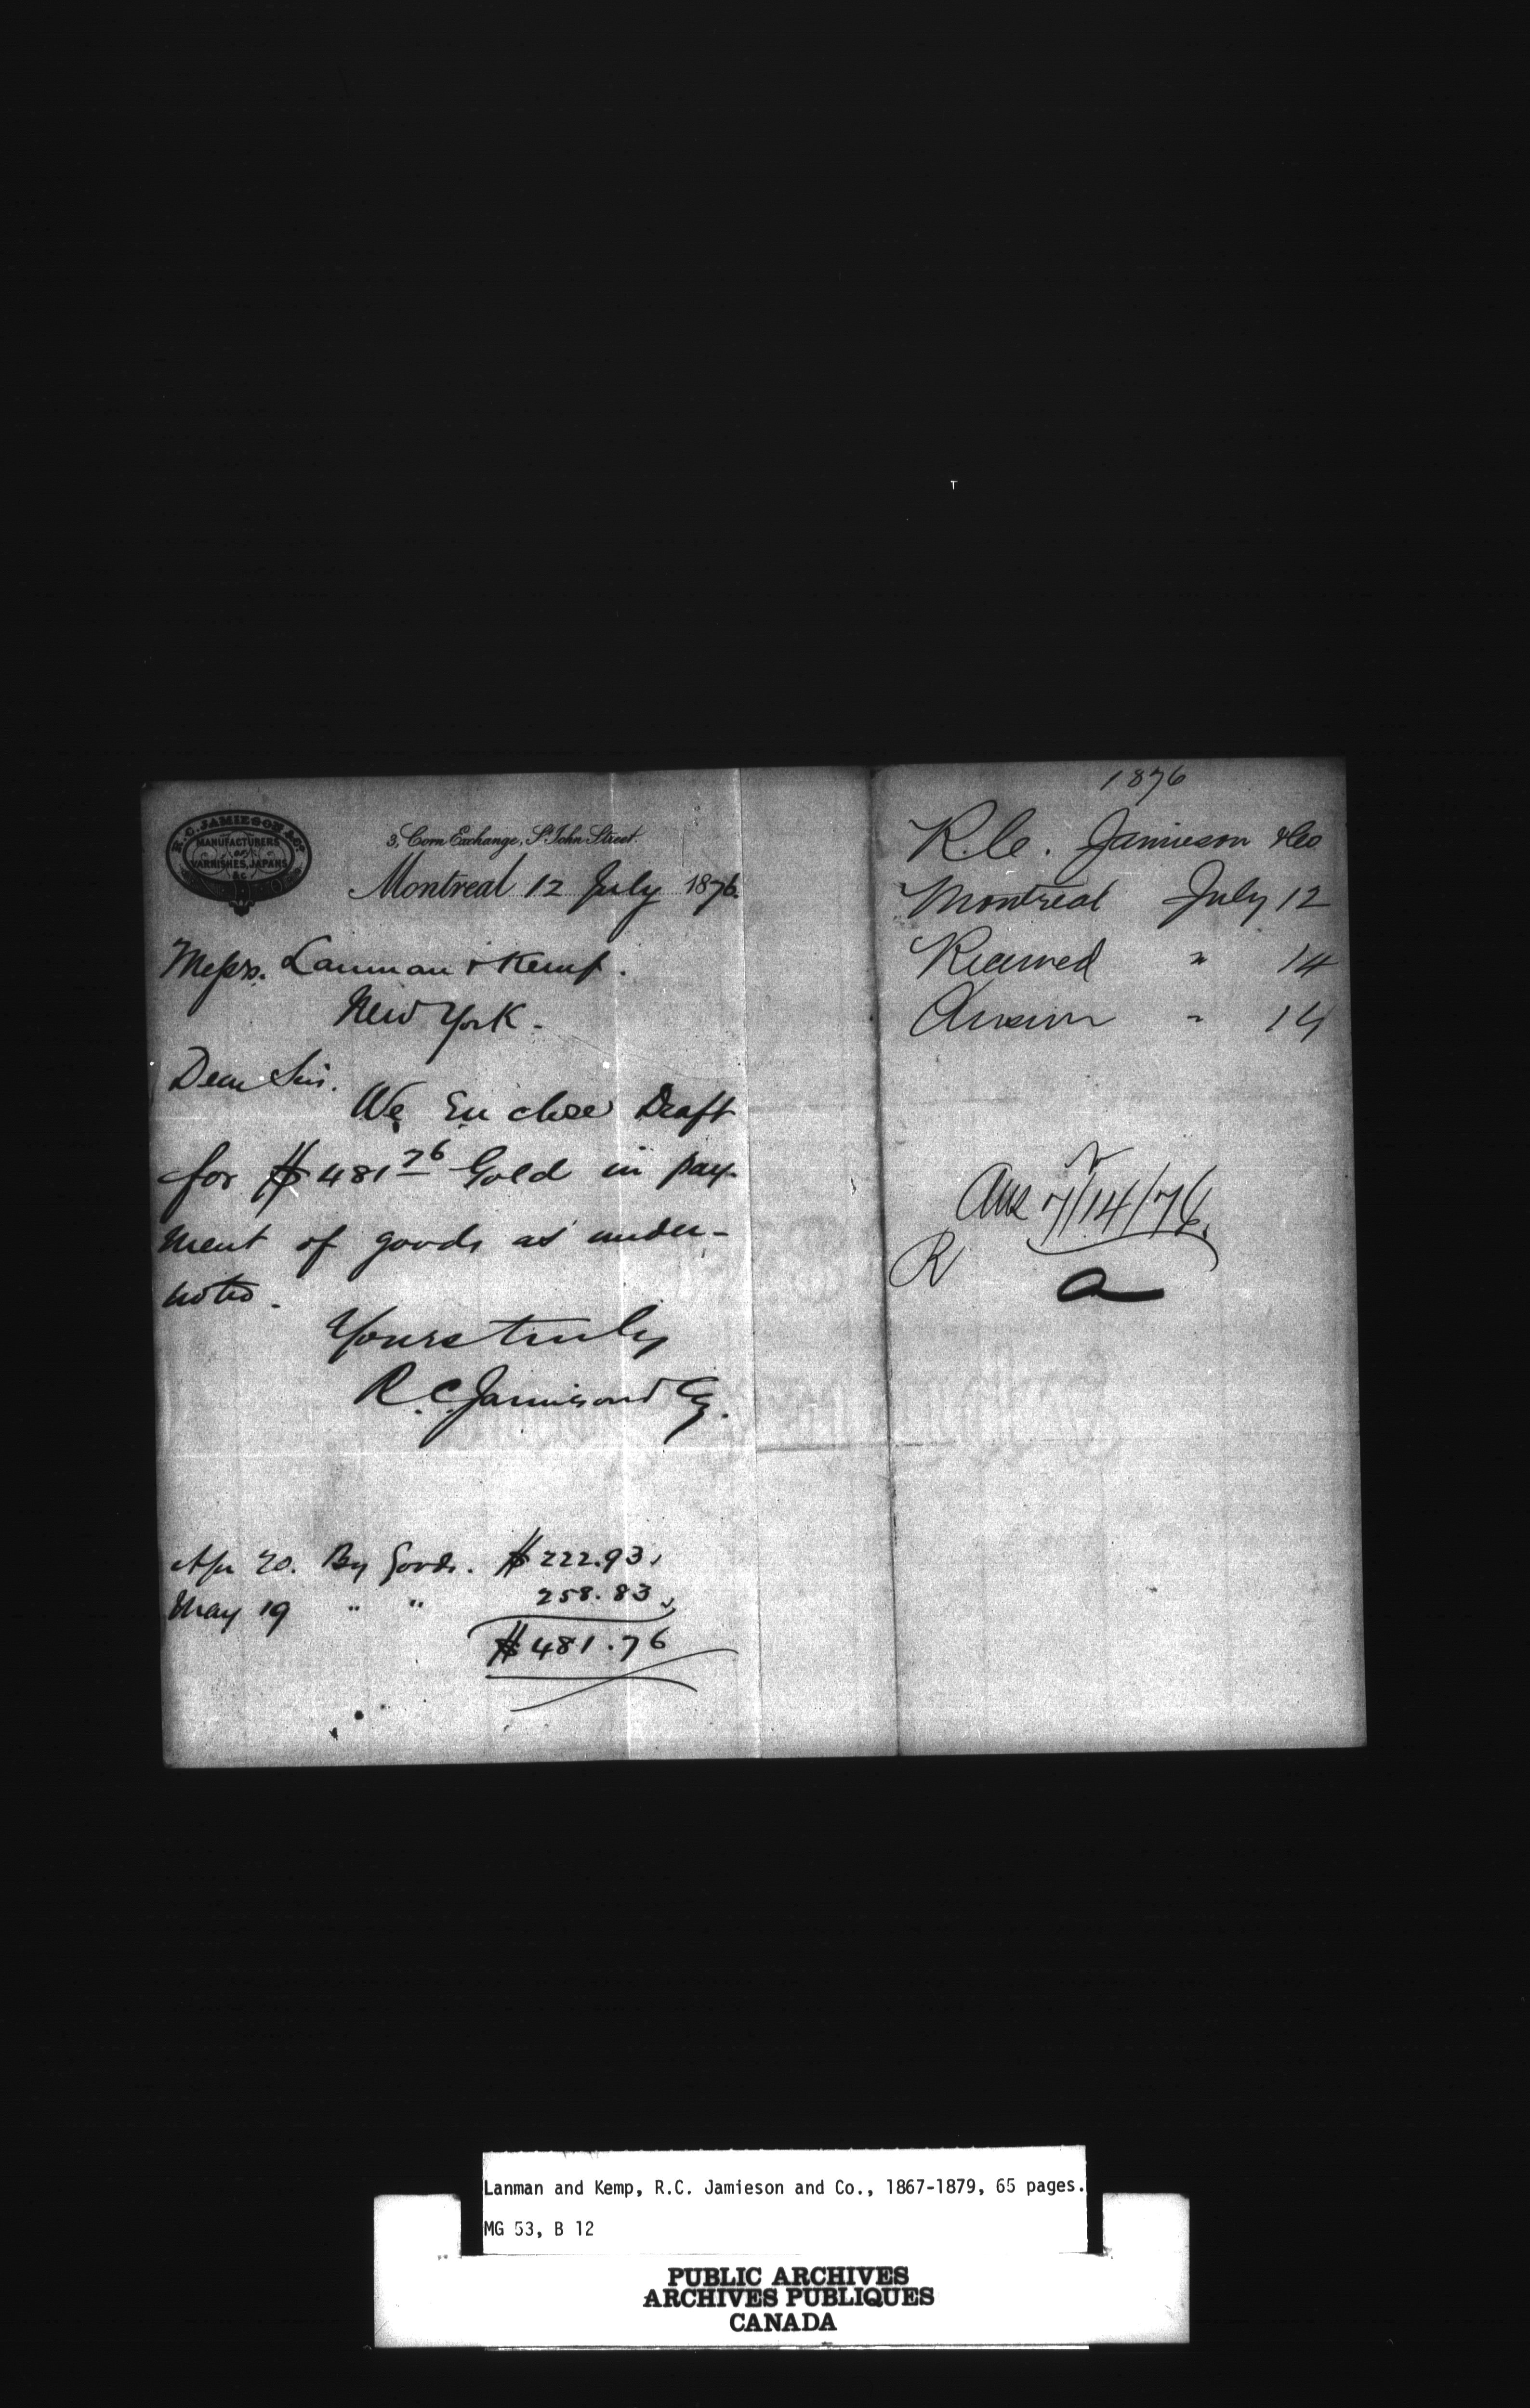 R. C. JAMIESON & CO.
MANUFACTURERS
OF
VARNISHES, JAPANS
&C
3, Corn Exchange, St. John Street.
Montreal 12 July 1876.
Messrs. Lanman & Kemp.
New York.
Dear Sirs.
We Enclose Draft
for $481 76 Gold in pay-
ment of goods as under-
noted.
Yours truly
R. C. Jamieson & Co.
Apr 20. By Goods. $222.93
May 19 " " 258.83
$481.76
1876
R. C. Jamieson & Co
Montreal July 12
Received " 14
Answer " 14
Ans 7/14/76.
R
a
Lanman and Kemp, R.C. Jamieson and Co., 1867-1879, 65 pages.
MG 53, B 12
PUBLIC ARCHIVES
ARCHIVES PUBLIQUES
CANADA